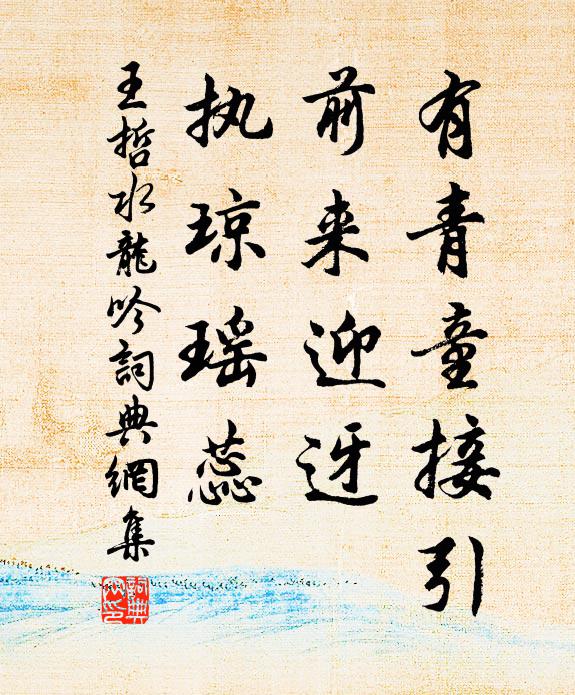 有青童接引
前来迎迓
执琼瑶蕊
王哲水龍吟詞典網集